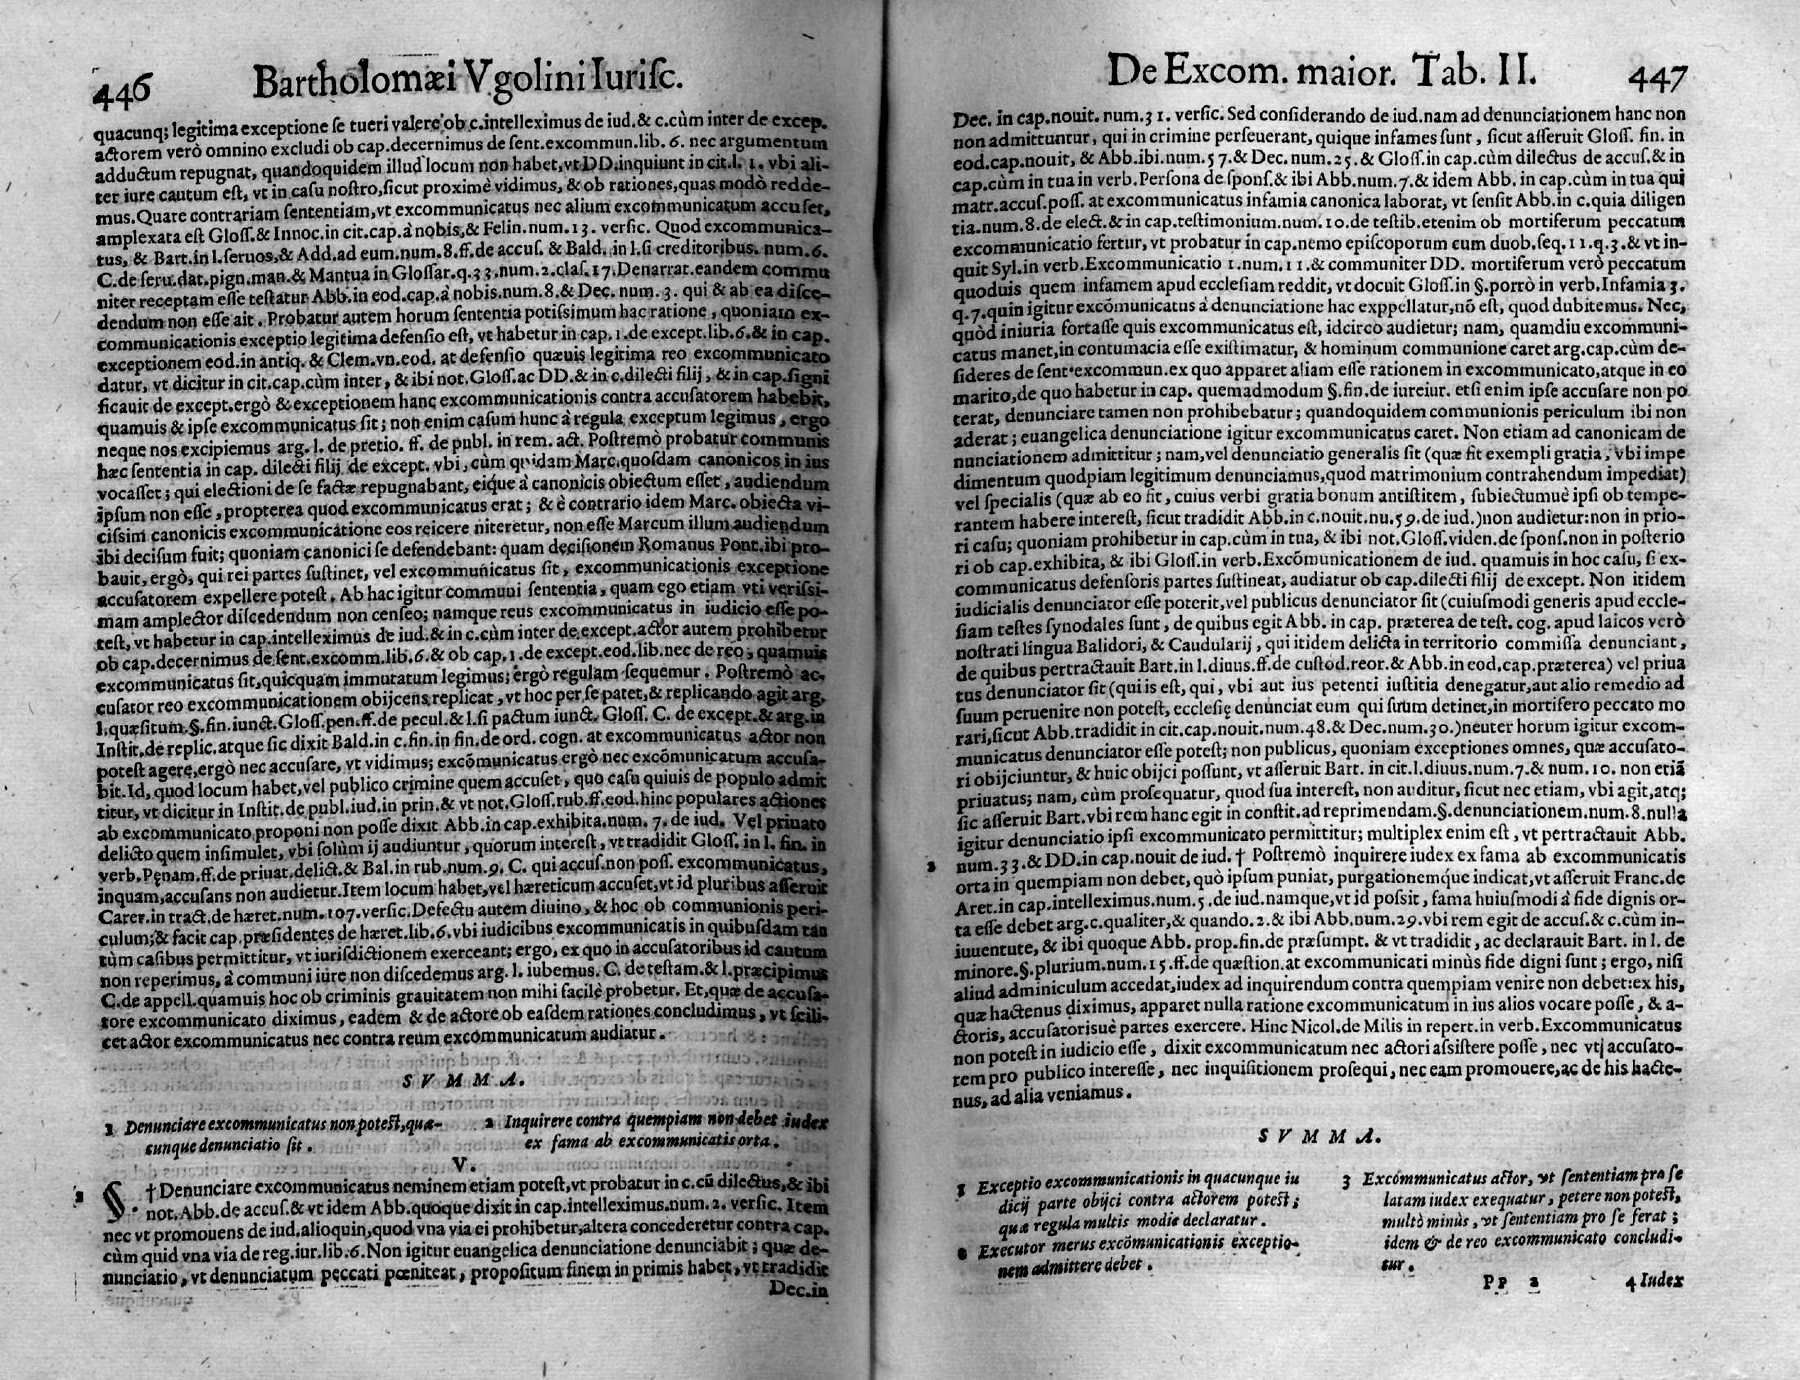 446 Bartholomæi Vgolini Iurisc.
quacunq; legitima exceptione se tueri valere ob c.intelleximus de iud.& c.cùm inter de excep.
actorem verò omnino excludi ob cap.decernimus de sent.excommun.lib. 6. nec argumentum
adductum repugnat, quandoquidem illud locum non habet,vt DD.inquiunt in cit.l. 1. vbi ali-
ter iure cautum est, vt in casu nostro,sicut proximè vidimus, & ob rationes,quas modò redde-
mus.Quare contrariam sententiam,vt excommunicatus nec alium excommunicatum accuset,
amplexata est Gloss.& Innoc.in cit.cap.à nobis,& Felin.num.13. versic. Quod excommunica-
tus, & Bart.in l.seruos,& Add.ad eum.num.8.ff.de accus. & Bald. in l.si creditoribus. num.6.
C.de seru.dat.pign.man.& Mantua in Glossar.q.33.num.2.clas.17.Denarrat.eandem commu
niter receptam esse testatur Abb.in eod.cap.à nobis.num.8.& Dec. num. 3. qui & ab ea disce-
dendum non esse ait. Probatur autem horum sententia potissimum hac ratione, quoniam ex-
communicationis exceptio legitima defensio est, vt habetur in cap. 1.de except.lib.6.& in cap.
exceptionem eod.in antiq. & Clem.vn.eod. at defensio quæuis legitima reo excommunicato
datur, vt dicitur in cit.cap.cùm inter, & ibi not.Gloss.ac DD.& in c.dilecti filij, & in cap.signi
ficauit de except.ergò & exceptionem hanc excommunicationis contra accusatorem habebit,
quamuis & ipse excommunicatus sit; non enim casum hunc à regula exceptum legimus, ergo
neque nos excipiemus arg. l. de pretio. ff. de publ. in rem. act. Postremò probatur communis
hæc sententia in cap. dilecti filij de except. vbi, cùm quidam Marc.quosdam canonicos in ius
vocasset; qui electioni de se factæ repugnabant, eique à canonicis obiectum esset, audiendum
ipsum non esse, propterea quod excommunicatus erat; & è contrario idem Marc. obiecta vi-
cissim canonicis excommunicatione eos reicere niteretur, non esse Marcum illum audiendum
ibi decisum fuit; quoniam canonici se defendebant: quam decisionem Romanus Pont.ibi pro-
bauit, ergò, qui rei partes sustinet, vel excommunicatus sit, excommunicationis exceptione
accusatorem expellere potest. Ab hac igitur communi sententia, quam ego etiam vti verissi-
mam amplector discedendum non censeo; namque reus excommunicatus in iudicio esse po-
test, vt habetur in cap.intelleximus de iud.& in c.cùm inter de except.actor autem prohibetur
ob cap.decernimus de sent.excomm.lib.6.& ob cap.1.de except.eod.lib.nec de reo, quamuis
excommunicatus sit,quicquam immutatum legimus; ergò regulam sequemur. Postremò ac-
cusator reo excommunicationem obijcens replicat, vt hoc per se patet,& replicando agit arg.
l.quæsitum.§.fin.iunct.Gloss.pen.ff.de pecul.& l.si pactum iunct. Gloss. C. de except.& arg.in
Instit.de replic.atque sic dixit Bald.in c.fin.in fin.de ord. cogn. at excommunicatus actor non
potest agere,ergò nec accusare, vt vidimus; excõmunicatus ergò nec excõmunicatum accusa-
bit.Id, quod locum habet,vel publico crimine quem accuset, quo casu quiuis de populo admit
titur, vt dicitur in Instit.de publ.iud.in prin.& vt not.Gloss.rub.ff.eod.hinc populares actiones
ab excommunicato proponi non posse dixit Abb.in cap.exhibita.num. 7. de iud. Vel priuato
delicto quem insimulet, vbi solùm ij audiuntur, quorum interest, vt tradidit Gloss. in l. fin. in
verb.Pęnam.ff.de priuat.delict.& Bal.in rub.num.9. C. qui accus.non poss. excommunicatus,
inquam,accusans non audietur.Item locum habet,vel hæreticum accuset,vt id pluribus asseruit
Carer.in tract.de hæret.num.107.versic.Defectu autem diuino, & hoc ob communionis peri-
culum;& facit cap.præsidentes de hæret.lib.6.vbi iudicibus excommunicatis in quibusdam tan
tùm casibus permittitur, vt iurisdictionem exerceant; ergo, ex quo in accusatoribus id cautum
non reperimus, à communi iure non discedemus arg. l. iubemus. C. de testam.& l.præcipimus
C.de appell.quamuis hoc ob criminis grauitatem non mihi facilè probetur. Et,quæ de accusa-
tore excommunicato diximus, eadem & de actore ob easdem rationes concludimus, vt scili-
cet actor excommunicatus nec contra reum excommunicatum audiatur.
SVMMA.
1 Denunciare excommunicatus non potest,quæ-
cunque denunciatio sit.
2 Inquirere contra quempiam non debet iudex
ex fama ab excommunicatis orta.
V.
1 §. † Denunciare excommunicatus neminem etiam potest,vt probatur in c.cũ dilectus,& ibi
not.Abb.de accus.& vt idem Abb.quoque dixit in cap.intelleximus.num.2. versic. Item
nec vt promouens de iud.alioquin,quod vna via ei prohibetur,altera concederetur contra cap.
cùm quid vna via de reg.iur.lib.6.Non igitur euangelica denunciatione denunciabit; quæ de-
nunciatio, vt denunciatum peccati pœniteat, propositum finem in primis habet, vt tradidit
Dec.in
De Excom. maior. Tab. II. 447
Dec. in cap.nouit. num.31. versic. Sed considerando de iud.nam ad denunciationem hanc non
non admittuntur, qui in crimine perseuerant, quique infames sunt, sicut asseruit Gloss. fin. in
eod.cap.nouit, & Abb.ibi.num.57.& Dec.num.25.& Gloss.in cap.cùm dilectus de accus.& in
cap.cùm in tua in verb.Persona de spons.& ibi Abb.num.7.& idem Abb. in cap.cùm in tua qui
matr.accus.poss. at excommunicatus infamia canonica laborat, vt sensit Abb.in c.quia diligen
tia.num.8.de elect.& in cap.testimonium.num.10.de testib.etenim ob mortiferum peccatum
excommunicatio fertur, vt probatur in cap.nemo episcoporum cum duob.seq.11.q.3.& vt in-
quit Syl.in verb.Excommunicatio 1.num.11.& communiter DD. mortiferum verò peccatum
quoduis quem infamem apud ecclesiam reddit, vt docuit Gloss.in §.porrò in verb.Infamia 3.
q.7.quin igitur excõmunicatus à denunciatione hac exppellatur,nõ est, quod dubitemus. Nec,
quòd iniuria fortasse quis excommunicatus est, idcirco audietur; nam, quamdiu excommuni-
catus manet,in contumacia esse existimatur, & hominum communione caret arg.cap.cùm de-
sideres de sent.excommun.ex quo apparet aliam esse rationem in excommunicato,atque in eo
marito,de quo habetur in cap. quemadmodum §.fin.de iureiur. etsi enim ipse accusare non po
terat, denunciare tamen non prohibebatur; quandoquidem communionis periculum ibi non
aderat; euangelica denunciatione igitur excommunicatus caret. Non etiam ad canonicam de
nunciationem admittitur; nam,vel denunciatio generalis sit (quæ fit exempli gratia, vbi impe
dimentum quodpiam legitimum denunciamus,quod matrimonium contrahendum impediat)
vel specialis (quæ ab eo fit, cuius verbi gratia bonum antistitem, subiectumuè ipsi ob tempe-
rantem habere interest, sicut tradidit Abb.in c.nouit.nu.59.de iud.)non audietur:non in prio-
ri casu; quoniam prohibetur in cap.cùm in tua, & ibi not.Gloss.viden.de spons.non in posterio
ri ob cap.exhibita, & ibi Gloss.in verb.Excõmunicationem de iud. quamuis in hoc casu, si ex-
communicatus defensoris partes sustineat, audiatur ob cap.dilecti filij de except. Non itidem
iudicialis denunciator esse poterit,vel publicus denunciator sit (cuiusmodi generis apud eccle-
siam testes synodales sunt, de quibus egit Abb. in cap. præterea de test. cog. apud laicos verò
nostrati lingua Balidori, & Caudularij, qui itidem delicta in territorio commissa denunciant,
de quibus pertractauit Bart.in l.diuus.ff.de custod.reor.& Abb.in eod.cap.præterea) vel priua
tus denunciator sit (qui is est, qui, vbi aut ius petenti iustitia denegatur,aut alio remedio ad
suum peruenire non potest, ecclesię denunciat eum qui suum detinet,in mortifero peccato mo
rari,sicut Abb.tradidit in cit.cap.nouit.num.48.& Dec.num.30.)neuter horum igitur excom-
municatus denunciator esse potest; non publicus, quoniam exceptiones omnes, quæ accusato-
ri obijciuntur, & huic obijci possunt, vt asseruit Bart. in cit.l.diuus.num.7.& num.10. non etiã
priuatus; nam, cùm prosequatur, quod sua interest, non auditur, sicut nec etiam, vbi agit,atq;
sic asseruit Bart.vbi rem hanc egit in constit.ad reprimendam.§.denunciationem.num.8.nulla
igitur denunciatio ipsi excommunicato permittitur; multiplex enim est, vt pertractauit Abb.
2 num.33.& DD.in cap.nouit de iud. † Postremò inquirere iudex ex fama ab excommunicatis
orta in quempiam non debet, quò ipsum puniat, purgationemq́ue indicat,vt asseruit Franc.de
Aret.in cap.intelleximus.num.5.de iud.namque,vt id possit, fama huiusmodi à fide dignis or-
ta esse debet arg.c.qualiter,& quando.2.& ibi Abb.num.29.vbi rem egit de accus.& c.cùm in-
iuuentute, & ibi quoque Abb. prop.fin.de præsumpt. & vt tradidit, ac declarauit Bart. in l. de
minore.§.plurium.num.15.ff.de quæstion.at excommunicati minùs fide digni sunt; ergo, nisi
aliud adminiculum accedat,iudex ad inquirendum contra quempiam venire non debet:ex his,
quæ hactenus diximus, apparet nulla ratione excommunicatum in ius alios vocare posse, & a-
ctoris, accusatorisuè partes exercere. Hinc Nicol.de Milis in repert.in verb.Excommunicatus
non potest in iudicio esse, dixit excommunicatum nec actori assistere posse, nec vti accusato-
rem pro publico interesse, nec inquisitionem prosequi, nec eam promouere,ac de his hacte-
nus, ad alia veniamus.
SVMMA.
1 Exceptio excommunicationis in quacunque iu
dicij parte obijci contra actorem potest;
quæ regula multis modis declaratur.
2 Executor merus excõmunicationis exceptio-
nem admittere debet.
3 Excommunicatus actor, vt sententiam pro se
latam iudex exequatur, petere non potest,
multò minùs, vt sententiam pro se ferat;
idem & de reo excommunicato concludi-
tur.
Pp 2 4 Iudex